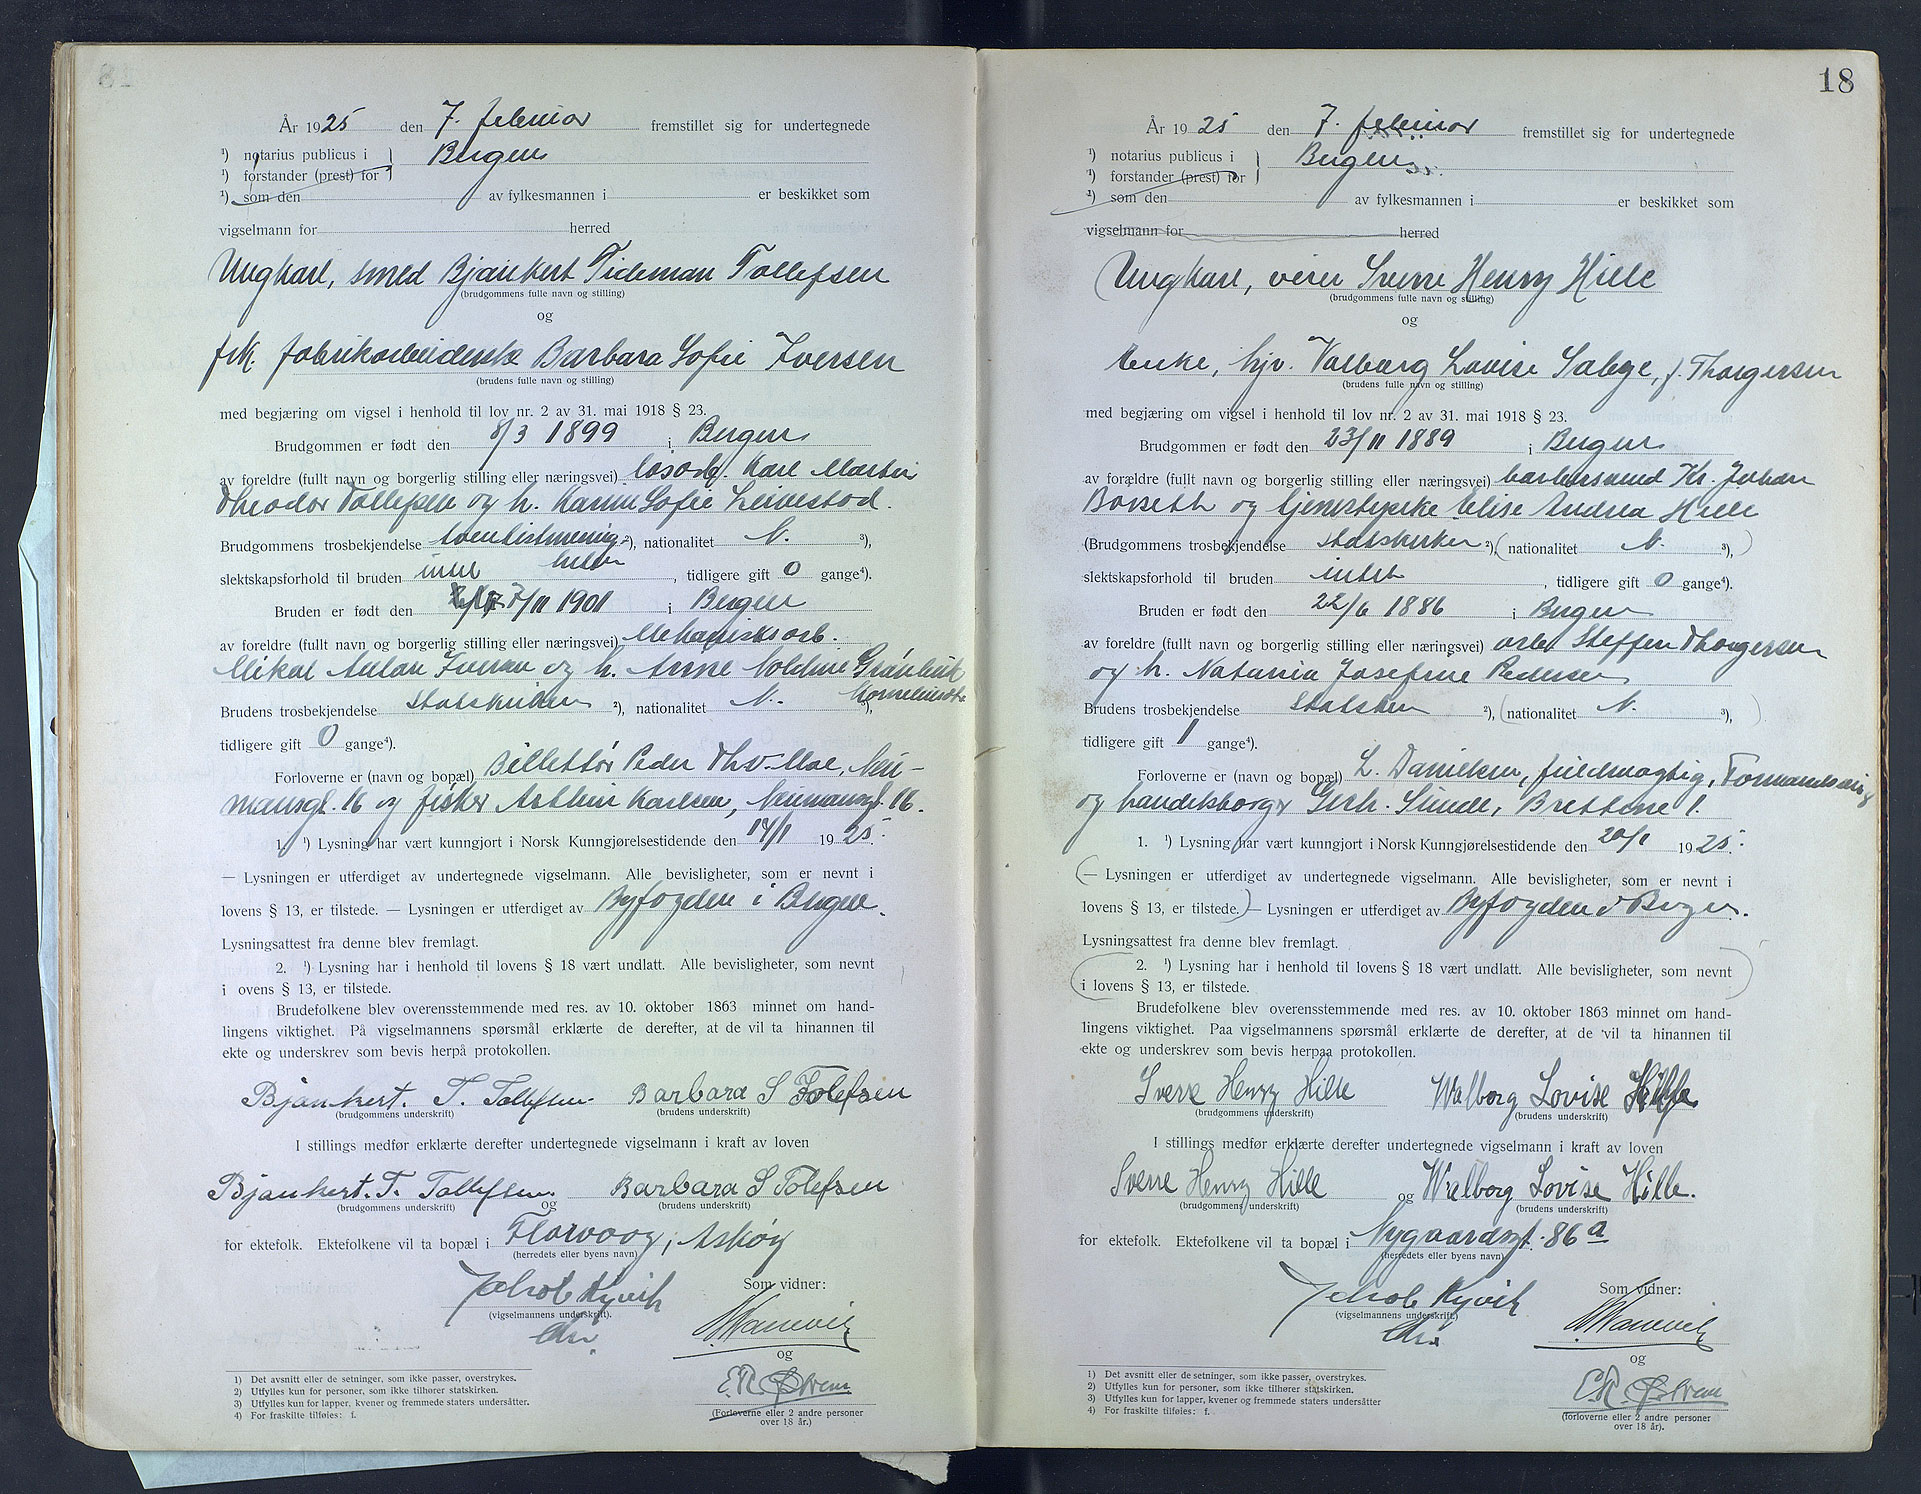 År 1925 den 7. februar fremstillet sig for undertegnede
¹) notarius publicus i Bergen
¹) forstander (prest) for
¹) som den av fylkesmannen i er beskikket som
vigselmann for herred
Ungkarl, smed Bjankert Tideman Tollefsen
(brudgommens fulle navn og stilling)
og
frk. fabrikarbeiderske Barbara Sofie Iversen
(brudens fulle navn og stilling)
med begjæring om vigsel i henhold til lov nr. 2 av 31. mai 1918 § 23.
Brudgommen er født den 8/3 1899 i Bergen
av foreldre (fullt navn og borgerlig stilling eller næringsvei) løsarb. Karl Martin
Theodor Tollefsen og h. Karen Sofie Leivestad.
Brudgommens trosbekjendelse ²), nationalitet N. ³),
slektskapsforhold til bruden intet , tidligere gift 0 gange⁴).
Bruden er født den 7/11 1901 i Bergen
av foreldre (fullt navn og borgerlig stilling eller næringsvei) Mekanisk arb.
Mikal Antan Iversen og h. Anne Noldine
Brudens trosbekjendelse statskirken ²), nationalitet N. ³), Korneliusdtr.
tidligere gift 0 gange⁴).
Forloverne er (navn og bopæl) Billettør Peder Moe, Neu-
mansgt. 16 og fisker Arthur Karlsen, Neumansgt. 16.
1. ¹) Lysning har vært kunngjort i Norsk Kunngjørelsestidende den 14/1 1925.
— Lysningen er utferdiget av undertegnede vigselmann. Alle bevisligheter, som er nevnt i
lovens § 13, er tilstede. — Lysningen er utferdiget av Byfogden i Bergen.
Lysningsattest fra denne blev fremlagt.
2. ¹) Lysning har i henhold til lovens § 18 vært undlatt. Alle bevisligheter, som nevnt
i ovens § 13, er tilstede.
Brudefolkene blev overensstemmende med res. av 10. oktober 1863 minnet om hand-
lingens viktighet. På vigselmannens spørsmål erklærte de derefter, at de vil ta hinannen til
ekte og underskrev som bevis herpå protokollen.
Bjankert. T. Tollefsen. Barbara S Tolefsen
(brudgommens underskrift) (brudens underskrift)
I stillings medfør erklærte derefter undertegnede vigselmann i kraft av loven
Bjankert. T. Tollefsen. og Barbara S Tolefsen
(brudgommens underskrift) (brudens underskrift)
for ektefolk. Ektefolkene vil ta bopæl i Florvaag, Askøy
(herredets eller byens navn)
Jakob Kyvik Som vidner:
(vigselmannens underskrift).
og
(Forloverne eller 2 andre personer
over 18 år.)
1) Det avsnitt eller de setninger, som ikke passer, overstrykes.
2) Utfylles kun for personer, som ikke tilhører statskirken.
3) Utfylles kun for lapper, kvener og fremmede staters undersåtter.
4) For fraskilte tilføies: f.
18
År 1925 den 7. februar fremstillet sig for undertegnede
¹) notarius publicus i Bergen
¹) forstander (prest) for
¹) som den av fylkesmannen i er beskikket som
vigselmann for herred
Ungkarl, veier Sverre Henry Hille
(brudgommens fulle navn og stilling)
og
Enke, hjv. Valborg Lovise Sabye, f. Thorgersen
(brudens fulle navn og stilling)
med begjæring om vigsel i henhold til lov nr. 2 av 31. mai 1918 § 23.
Brudgommen er født den 23/11 1889 i Bergen
av forældre (fullt navn og borgerlig stilling eller næringsvei) barbersvend Kr. Johan
Borseth og tjenestepike Elise Andrea Hille
(Brudgommens trosbekjendelse statskirken ²), (nationalitet N. ³),)
slektskapsforhold til bruden intet , tidligere gift 0 gange⁴).
Bruden er født den 22/6 1886 i Bergen
av foreldre (fullt navn og borgerlig stilling eller næringsvei) arb. Steffen Thorgersen
og h. Natania Josefine Pedersen
Brudens trosbekjendelse statskirken ²), (nationalitet N. ³),)
tidligere gift 1 gange⁴).
Forloverne er (navn og bopæl) L. Danielsen, fuldmægtig,
og handelsborger Gerh. Sunde, 1.
1. ¹) Lysning har vært kunngjort i Norsk Kunngjørelsestidende den 20/1 1925.
(— Lysningen er utferdiget av undertegnede vigselmann. Alle bevisligheter, som er nevnt i
lovens § 13, er tilstede.) — Lysningen er utferdiget av Byfogden i Bergen.
Lysningsattest fra denne blev fremlagt.
(2. ¹) Lysning har i henhold til lovens § 18 vært undlatt. Alle bevisligheter, som nevnt
i lovens § 13, er tilstede.)
Brudefolkene blev overensstemmende med res. av 10. oktober 1863 minnet om hand-
lingens viktighet. Paa vigselmannens spørsmål erklærte de derefter, at de vil ta hinannen til
ekte og underskrev som bevis herpaa protokollen.
Sverre Henry Hille Walborg Lovise Hille
(brudgommens underskrift) (brudens underskrift)
I stillings medfør erklærte derefter undertegnede vigselmann i kraft av loven
Sverre Henry Hille og Walborg Lovise Hille.
(brudgommens underskrift) (brudens underskrift)
for ektefolk. Ektefolkene vil ta bopæl i Nygaardsgt. 86 a
(herredets eller byens navn)
Jakob Kyvik Som vidner:
(vigselmannens underskrift.)
og
(forloverne eller 2 andre personer
over 18 år).
1) Det avsnitt eller de setninger, som ikke passer, overstrykes.
2) Utfylles kun for personer, som ikke tilhører statskirken.
3) Utfylles kun for lapper, kvener og fremmede staters undersåtter
4) For fraskilte tilføies: f.